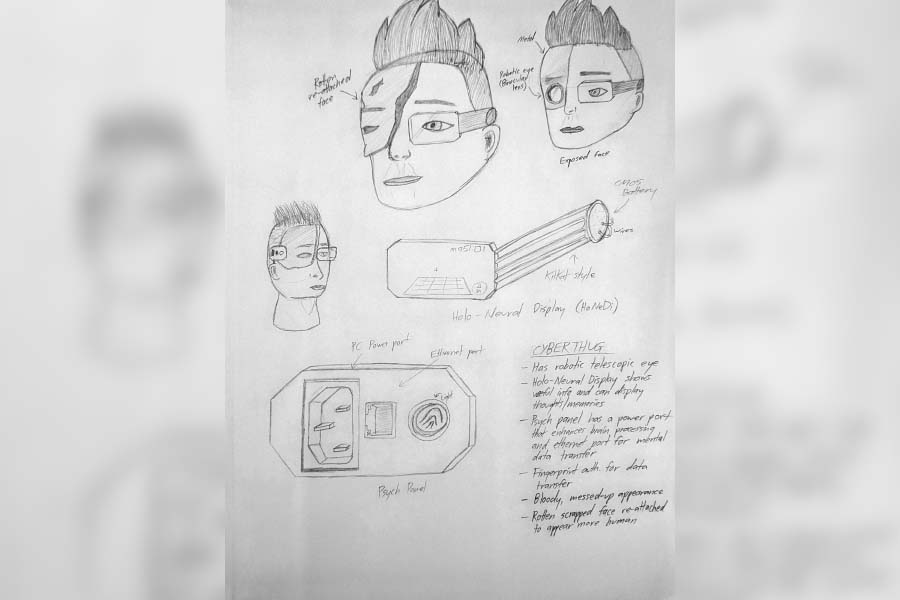 Metal
Rotten
re-attached
face
Robotic eye
(Binocular
lens)
Exposed face
CMOS
Battery
wires
Kitkat style
Holo-Neural Display (HoNeDi)
PC Power port
Ethernet port
Light
Psych Panel
CYBERTHUG
- Has robotic telescopic eye
- Holo-Neural Display shows
useful info and can display
thoughts/memories
- Psych panel has a power port
that enhances brain processing
and ethernet port for mental
data transfer
- Fingerprint auth. for data
transfer
- Bloody, messed-up appearance
- Rotten scrapped face re-attached
to appear more human